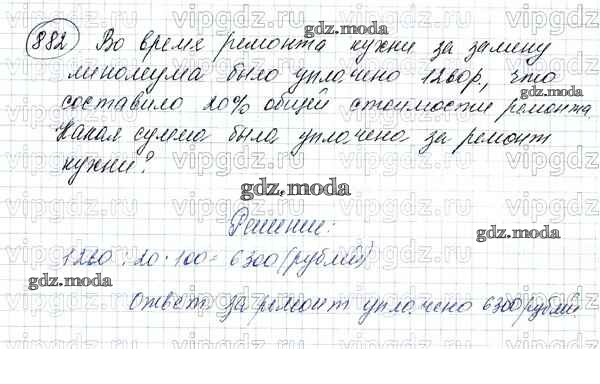 882 Во время ремонта кухни за замену
линолеума было уплачено 1260р, что
составило 20% общей стоимости ремонта.
Какая сумма была уплачена за ремонт
кухни?
Решение:
1260 : 20 · 100 = 6300 (рублей)
Ответ за ремонт уплачено 6300 рублей.
gdz.moda
gdz.moda
gdz.moda
gdz.moda
gdz.moda
gdz.moda
vipgdz.ru